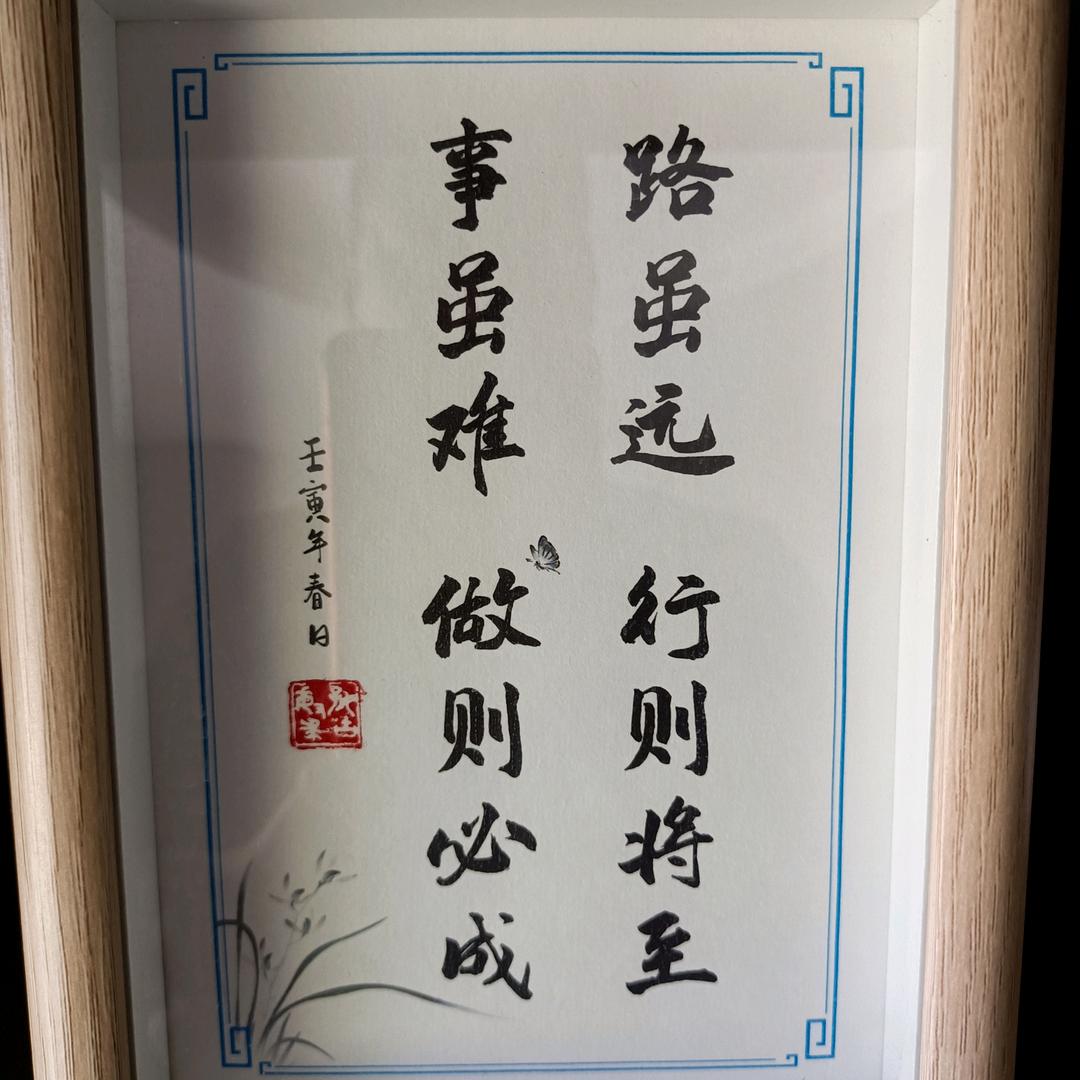 路虽远 行则将至
事虽难 做则必成
壬寅年春日